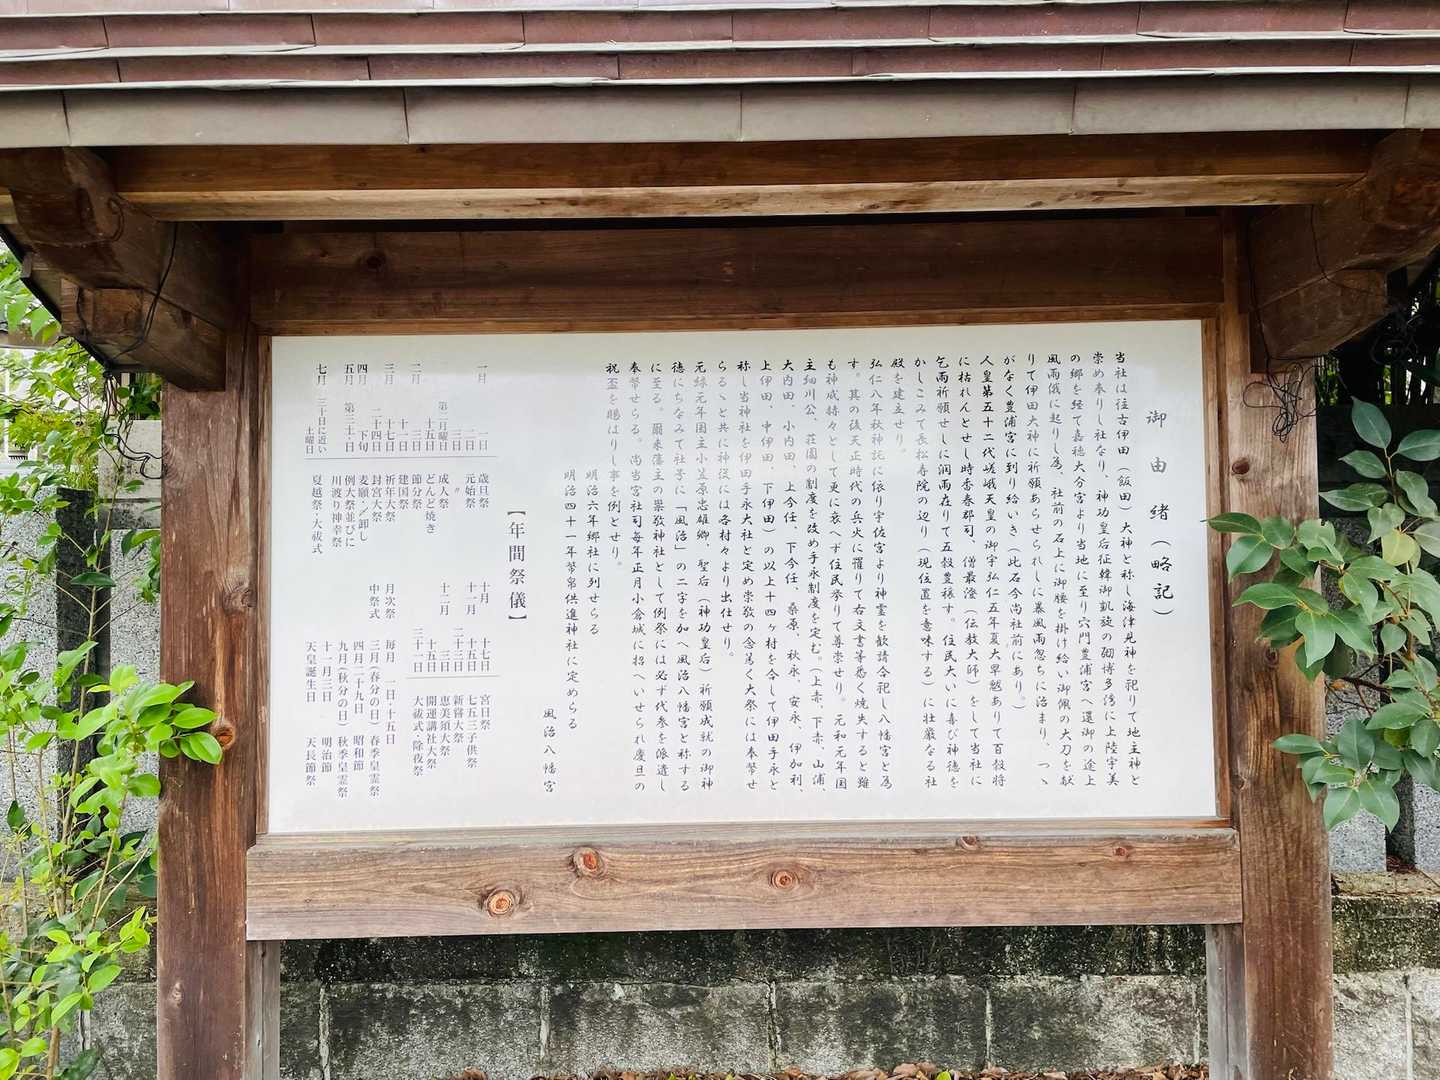 御由緒（略記）
当社は往古伊田（飯田）大神と称し海津見神を祀りて地主神と
崇め奉りし社なり、神功皇后征韓御凱旋の砌博多湾に上陸宇美
の郷を経て嘉穂大分宮より当地に至り穴門豊浦宮へ還御の途上
風雨俄に起りし為、社前の石上に御腰を掛け給い御佩の大刀を献
りて伊田大神に祈願あらせられしに暴風雨忽ちに治まり、つゝ
がなく豊浦宮に到り給いき（此石今尚社前にあり。）
人皇第五十二代嵯峨天皇の御宇弘仁五年夏大旱魃ありて百穀将
に枯れんとせし時香春郡司、僧最澄（伝教大師）をして当社に
乞雨祈願せしに潤雨在りて五穀豊穣す。住民大いに喜び神徳を
かしこみて長松寿院の辺り（現位置を意味する）に壮厳なる社
殿を建立せり。
弘仁八年秋神託に依り宇佐宮より神霊を勧請合祀し八幡宮と為
す。其の後天正時代の兵火に罹りて古文書等悉く焼失すると雖
も神威赫々として更に衰へず住民挙りて尊崇せり。元和元年国
主細川公、荘園の制度を改め手永制度を定む。（上赤、下赤、山浦、
大内田、小内田、上今任、下今任、桑原、秋永、安永、伊加利、
上伊田、中伊田、下伊田）の以上十四ヶ村を合して伊田手永と
称し当神社を伊田手永大社と定め崇敬の念篤く大祭には奉幣せ
らるゝと共に神役には各村々より出仕せり。
元禄元年国主小笠原忠雄卿、聖后（神功皇后）祈願成就の御神
徳にちなみて社号に「風治」の二字を加へ風治八幡宮と称する
に至る。爾来藩主の崇敬神社として例祭には必ず代参を派遣し
奉幣せらる。尚当宮社司毎年正月小倉城に招へいせられ慶旦の
祝盃を賜はりし事を例とせり。
明治六年郷社に列せらる
明治四十一年幣帛供進神社に定めらる
風治八幡宮
【年間祭儀】
一月 一日 歳旦祭
二日 元始祭
三日 〃
第二月曜日 成人祭
十五日 どんど焼き
二月 三日 節分祭
十一日 建国祭
三月 十七日 祈年大祭
二十四日 封宮大祭
四月 下旬 麦願ノ卸し
五月 第三土・日 例大祭並びに
川渡り神幸祭
七月 三十日に近い
土曜日 夏越祭・大祓式
十月 十七日 宮日祭
十一月 十五日 七五三子供祭
二十三日 新嘗大祭
十二月 三日 恵美須大祭
十五日 開運講社大祭
三十一日 大祓式・除夜祭
月次祭 毎月 一日・十五日
中祭式 三月（春分の日）春季皇霊祭
四月二十九日 昭和節
九月（秋分の日）秋季皇霊祭
十一月三日 明治節
天皇誕生日 天長節祭